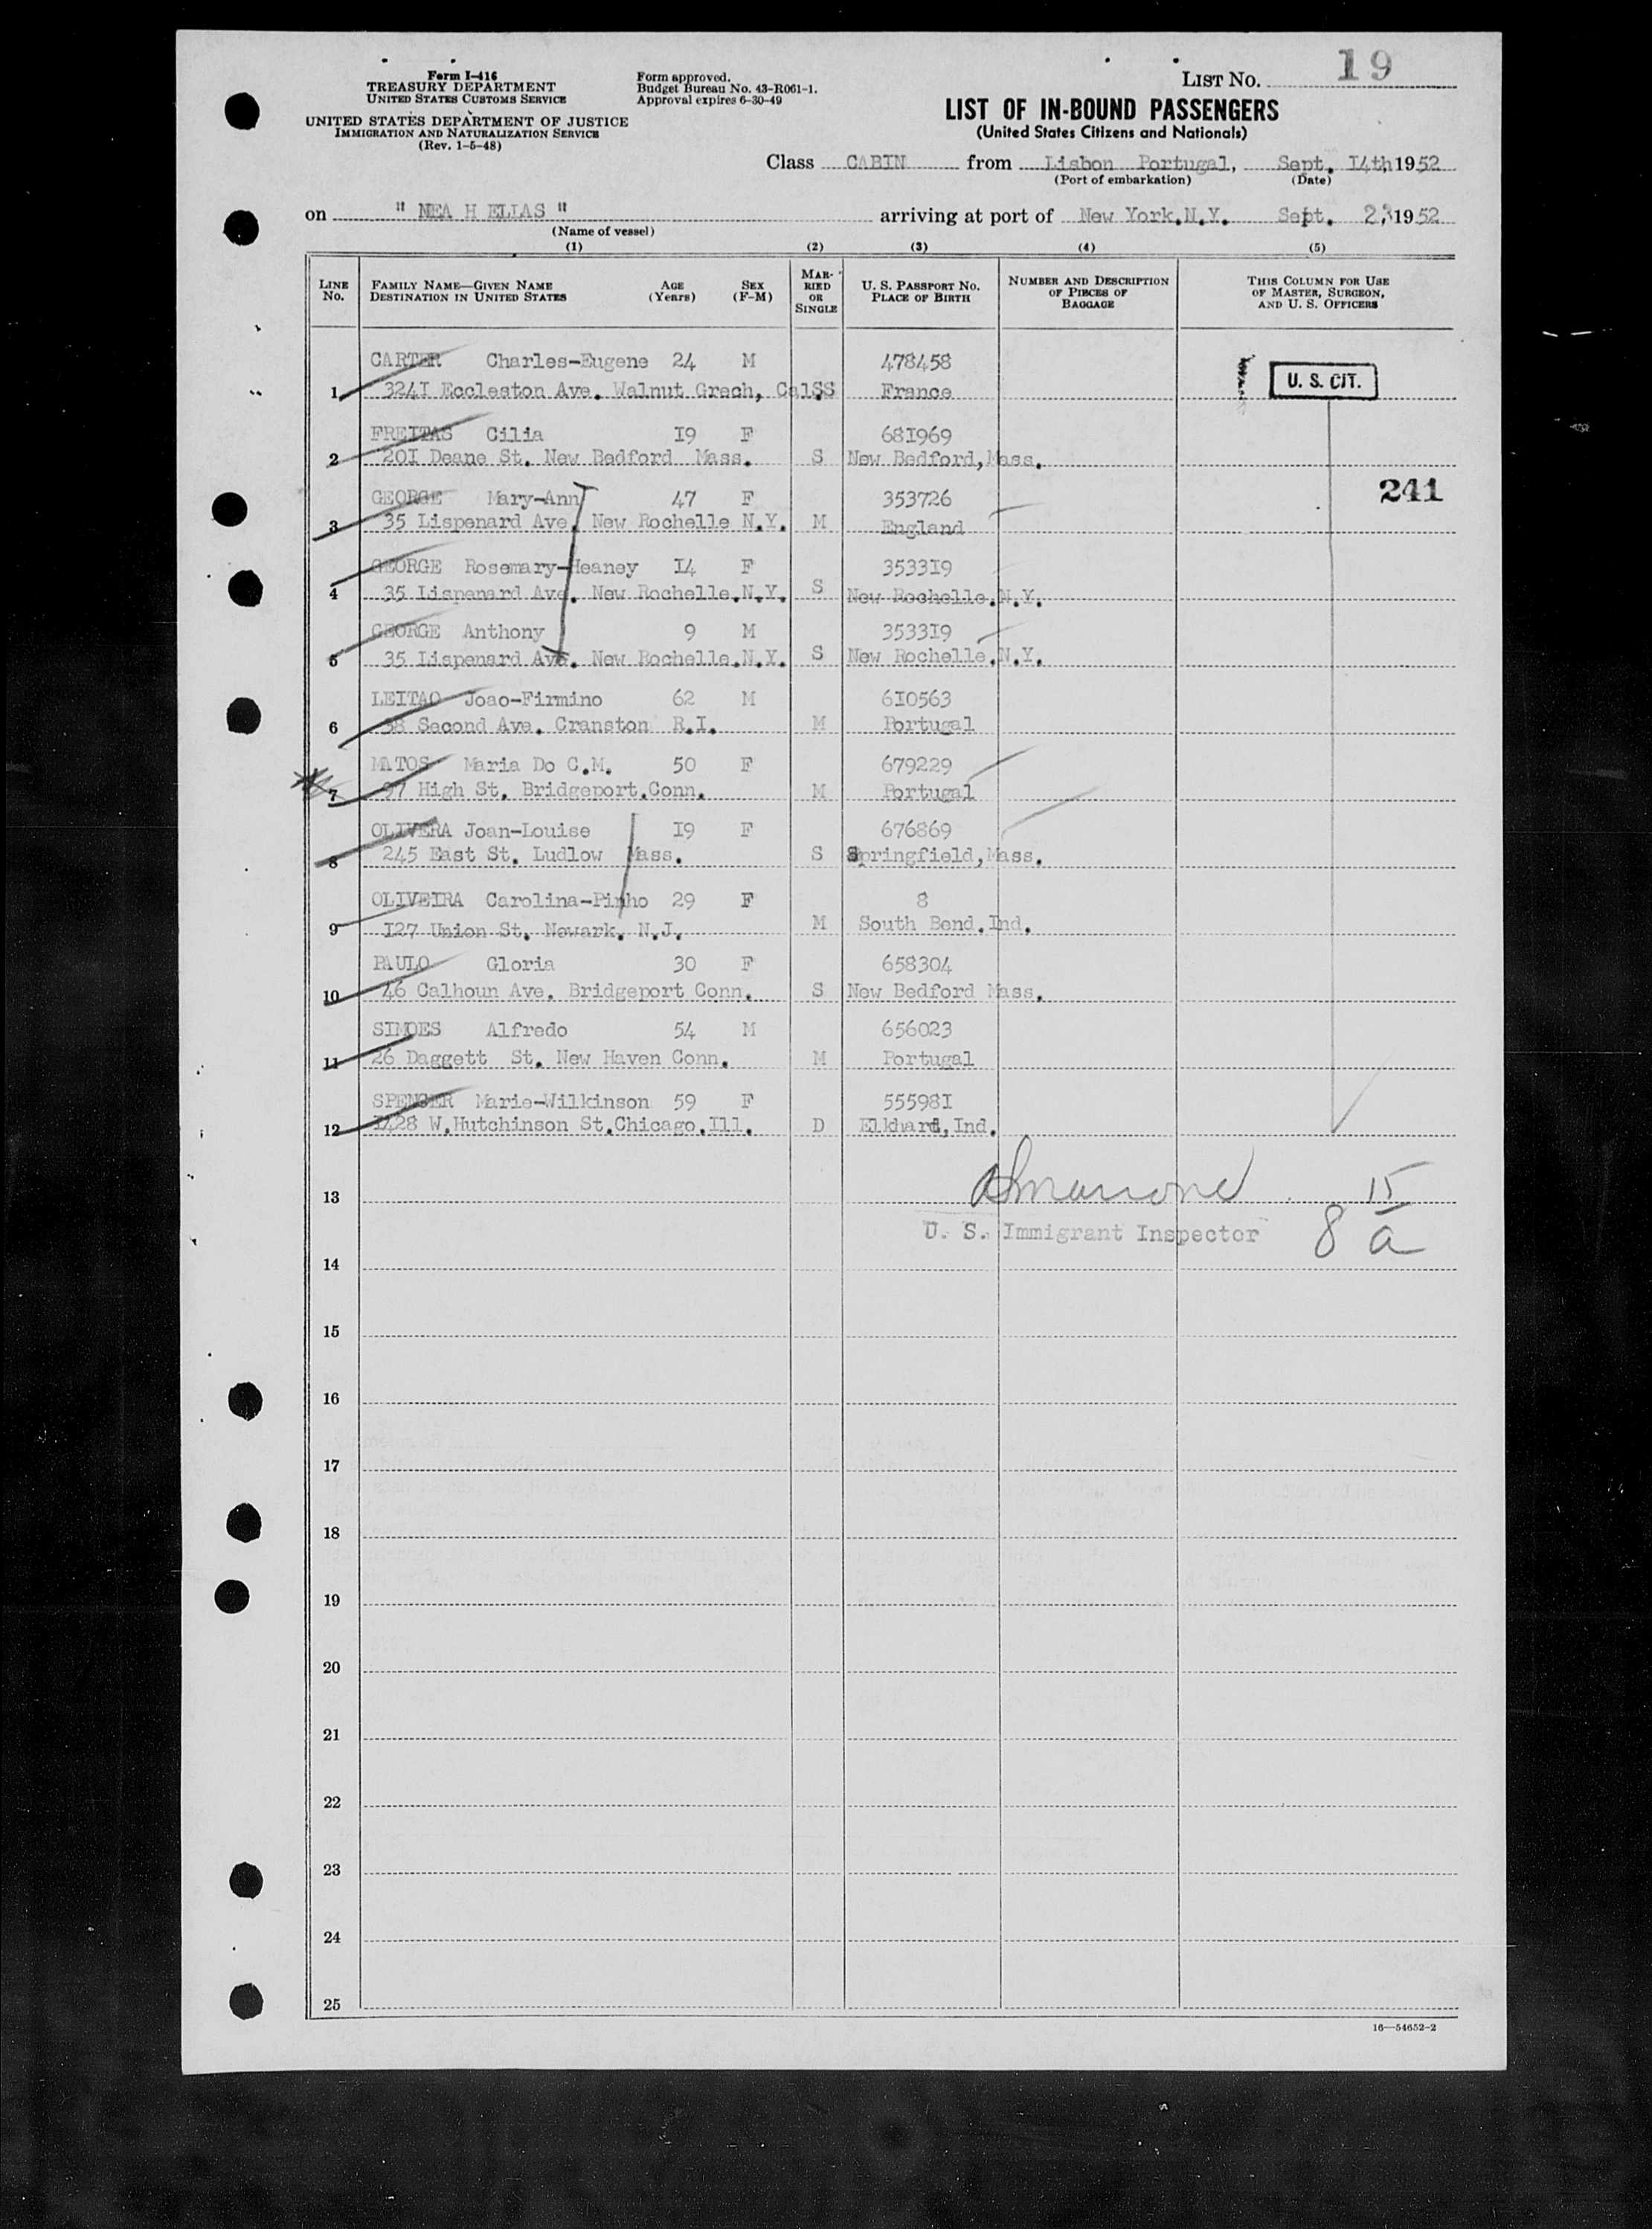 Form I-416
TREASURY DEPARTMENT
UNITED STATES CUSTOMS SERVICE
UNITED STATES DEPARTMENT OF JUSTICE
IMMIGRATION AND NATURALIZATION SERVICE
(Rev. 1-5-48)
Form approved.
Budget Bureau No. 43-R061-1.
Approval expires 6-30-49
LIST NO. 19
LIST OF IN-BOUND PASSENGERS
(United States Citizens and Nationals)
Class CABIN from Lisbon Portugal, Sept. I4th, 1952
(Port of embarkation) (Date)
on " NEA H ELIAS " arriving at port of New York.N.Y. Sept. 23, 1952
(Name of vessel)
(1) (2) (3) (4) (5)
LINE NO. FAMILY NAME—GIVEN NAME DESTINATION IN UNITED STATES AGE (Years) SEX (F-M) MARRIED OR SINGLE U. S. PASSPORT NO. PLACE OF BIRTH NUMBER AND DESCRIPTION OF PIECES OF BAGGAGE THIS COLUMN FOR USE OF MASTER, SURGEON, AND U. S. OFFICERS
CARTER Charles-Eugene 24 M 478458 U. S. CIT.
1 324I Eccleston Ave. Walnut Grech, Cal. SS France
FREITAS Cilia I9 F 68I969
2 20I Deane St. New Bedford Mass. S New Bedford, Mass.
241
GEORGE Mary-Ann 47 F 353726
3 35 Lispenard Ave. New Rochelle N.Y. M England
GEORGE Rosemary-Heaney I4 F 3533I9
4 35 Lispenard Ave. New Rochelle.N.Y. S New Rochelle.N.Y.
GEORGE Anthony 9 M 3533I9
5 35 Lispenard Ave. New Rochelle.N.Y. S New Rochelle.N.Y.
LEITAO Joao-Firmino 62 M 6I0563
6 38 Second Ave. Cranston R.I. M Portugal
MATOS Maria Do C.M. 50 F 679229
7 97 High St. Bridgeport.Conn. M Portugal
OLIVERA Joan-Louise I9 F 676869
8 245 East St. Ludlow Mass. S Springfield, Mass.
OLIVEIRA Carolina-Pinho 29 F 8
9 I27 Union St. Newark. N.J. M South Bend.Ind.
PAULO Gloria 30 F 658304
10 46 Calhoun Ave. Bridgeport Conn. S New Bedford Mass.
SIMOES Alfredo 54 M 656023
11 26 Daggett St. New Haven Conn. M Portugal
SPENGER Marie-Wilkinson 59 F 55598I
12 I428 W.Hutchinson St.Chicago.Ill. D Elkhard, Ind.
13 15
U. S. Immigrant Inspector 8 a
14
15
16
17
18
19
20
21
22
23
24
25
16—54652-2